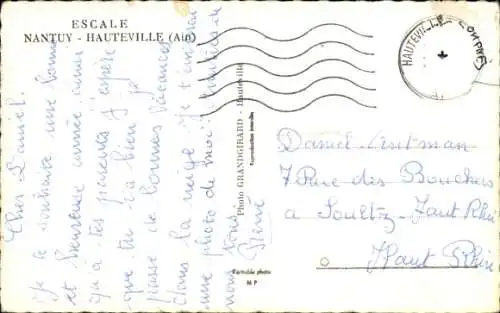 ESCALE
NANTUY - HAUTEVILLE (Ain)
Cher Daniel.
Je te souhaite une bonne
et heureuse année ainsi
qu'a tes parents j'espère
que tu va bien je
passe de bonnes vacances
dans la neige je t'
une photo de moi
nous tous.
Pierre
Photo GRANDGIRARD - Hauteville
Reproduction interdite
Véritable photo
M P
HAUTEVILLE-LOMPNES
Daniel
7 Rue des Bouchers
a Soultz-Haut Rhin
Haut Rhin